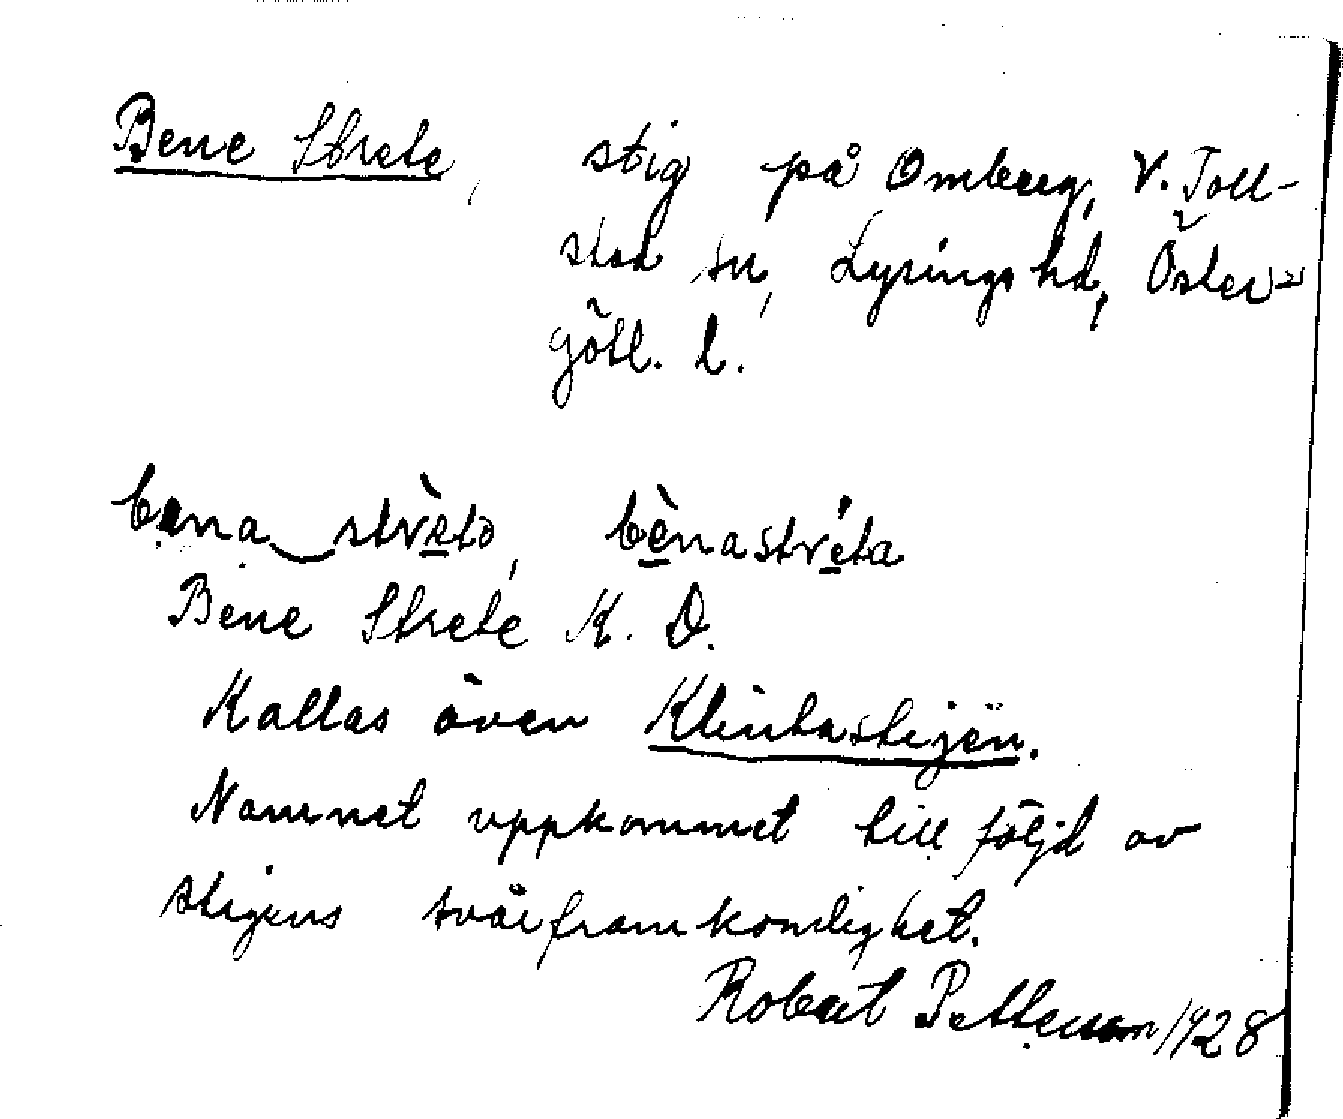 Bene Strete, stig på Omberg, V. Toll-
stad sn, Lysings hd, Öster-
götl. l.
bena strèto, bènastréta
Bene Strete K. D.
Kallas även Klintastijen.
Namnet uppkommet till följd av
stigens svårframkomlighet.
Robert Petterson 1928